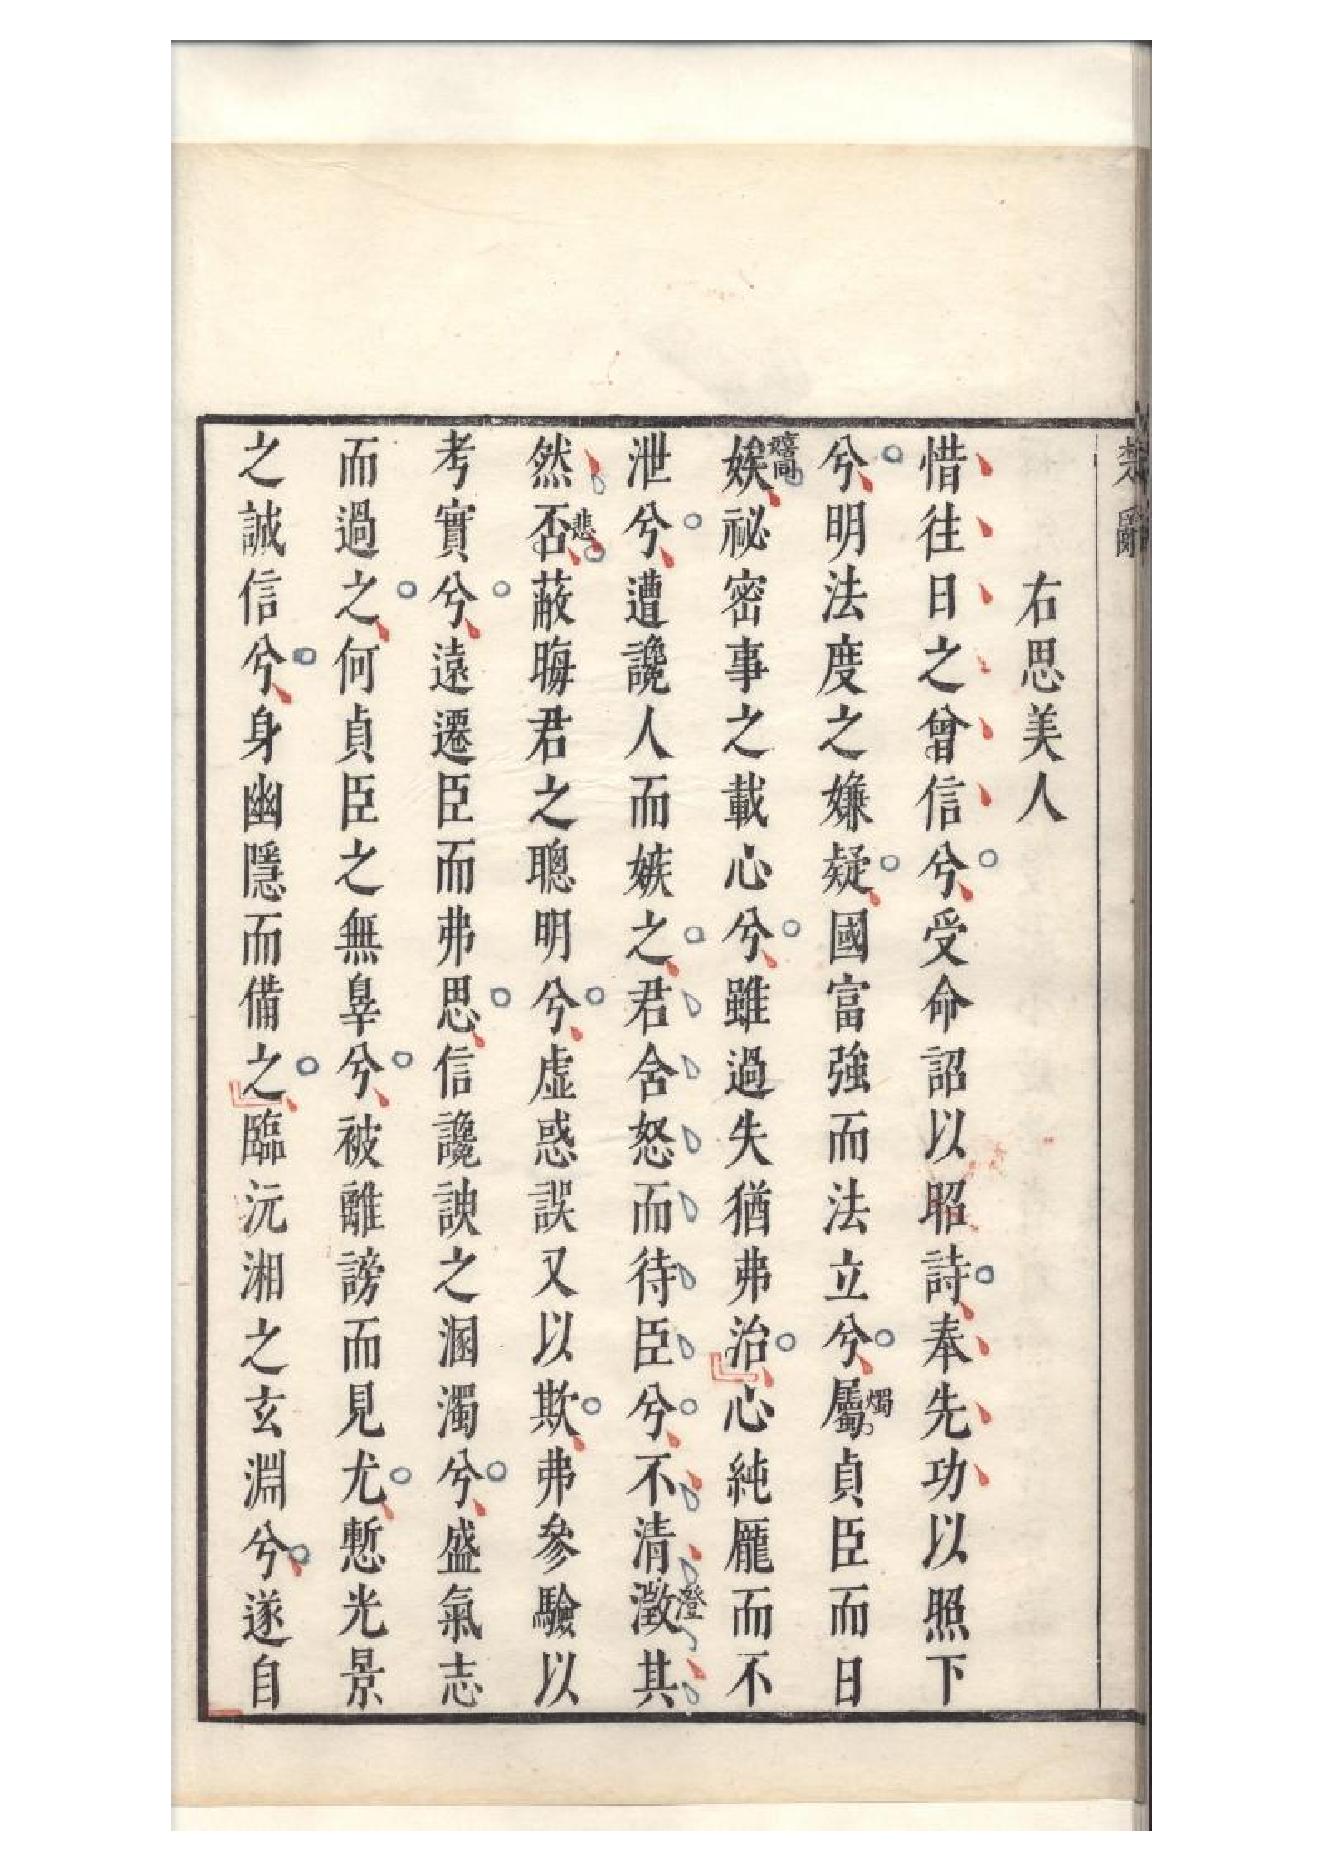 楚辭
右思美人
惜往日之曾信兮受命詔以昭詩奉先功以照下
兮明法度之嫌疑國富強而法立兮屬燭貞臣而日
娭嬉同祕密事之載心兮雖過失猶弗治心純厖而不
泄兮遭讒人而嫉之君含怒而待臣兮不清澂澄其
然否悲蔽晦君之聰明兮虛惑誤又以欺弗參驗以
考實兮遠遷臣而弗思信讒諛之溷濁兮盛氣志
而過之何貞臣之無辠兮被離謗而見尤慙光景
之誠信兮身幽隱而備之臨沅湘之玄淵兮遂自